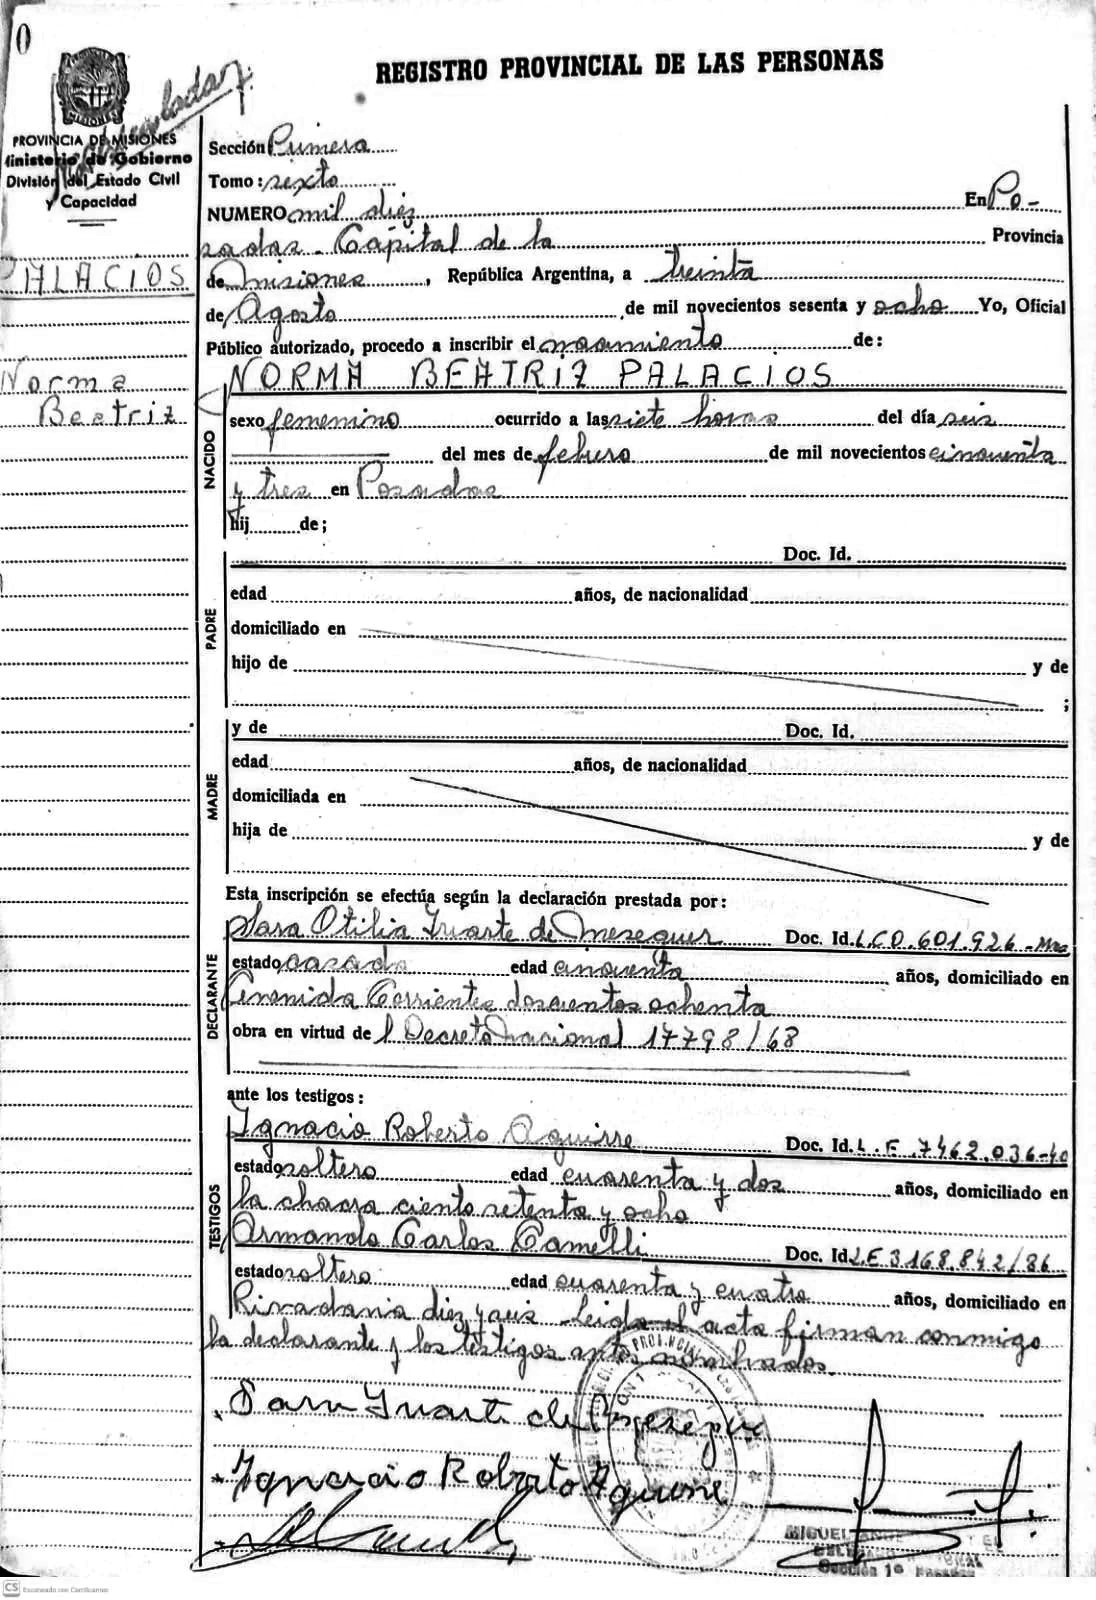 0
REGISTRO PROVINCIAL DE LAS PERSONAS
PROVINCIA DE MISIONES
Ministerio de Gobierno
División del Estado Civil
y Capacidad
PALACIOS
Norma
Beatriz
Sección Primera
Tomo: sexto
NUMERO mil diez En Po-
sadas - Capital de la Provincia
de Misiones, República Argentina, a treinta
de Agosto de mil novecientos sesenta y ocho Yo, Oficial
Público autorizado, procedo a inscribir el nacimiento de:
NORMA BEATRIZ PALACIOS
NACIDO
sexo femenino ocurrido a las siete horas del día seis
del mes de febrero de mil novecientos cincuenta
y tres en Posadas
hij de;
PADRE
Doc. Id.
edad años, de nacionalidad
domiciliado en
hijo de y de
;
MADRE
y de Doc. Id.
edad años, de nacionalidad
domiciliada en
hija de y de
Esta inscripción se efectúa según la declaración prestada por:
DECLARANTE
Sara Otilia Iriarte de Meseguer Doc. Id. L.C 0.601.926 - Mnes
estado casada edad cincuenta años, domiciliado en
Avenida Corrientes doscientos ochenta
obra en virtud del Decreto Nacional 17798/68
ante los testigos:
TESTIGOS
Ignacio Roberto Aguirre Doc. Id. L.E. 7462.036-40
estado soltero edad cuarenta y dos años, domiciliado en
la chacra ciento setenta y ocho
Armando Carlos Camelli Doc. Id L.E 3168.842/86
estado soltero edad cuarenta y cuatro años, domiciliado en
Rivadavia diez y seis - Leida el acta firman conmigo
la declarante y los testigos antes nombrados.
Sara Iriarte de Meseguer
Ignacio Roberto Aguirre
MIGUEL
Sección 1º
CS Escaneado con CamScanner